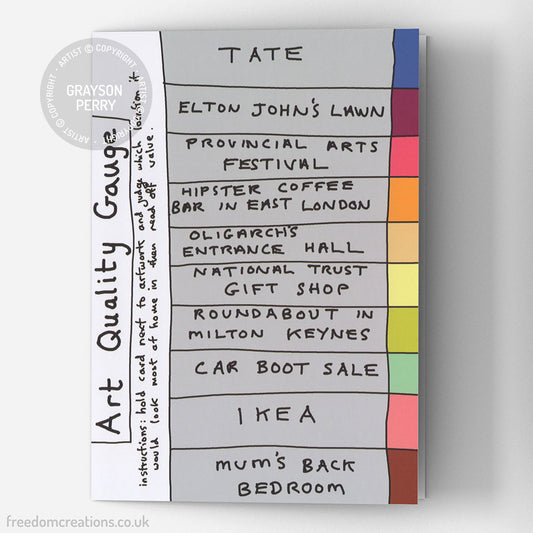 GRAYSON
PERRY
Art Quality Gauge
instructions: hold card next to artwork and judge which location it
would look most at home in then read off value.
TATE
ELTON JOHN'S LAWN
PROVINCIAL ARTS
FESTIVAL
HIPSTER COFFEE
BAR IN EAST LONDON
OLIGARCH'S
ENTRANCE HALL
NATIONAL TRUST
GIFT SHOP
ROUNDABOUT IN
MILTON KEYNES
CAR BOOT SALE
IKEA
MUM'S BACK
BEDROOM
freedomcreations.co.uk